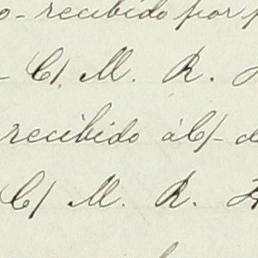 o- recibido por p
- C/. M. R. H
recibido á C/- d
C/ M. R. H